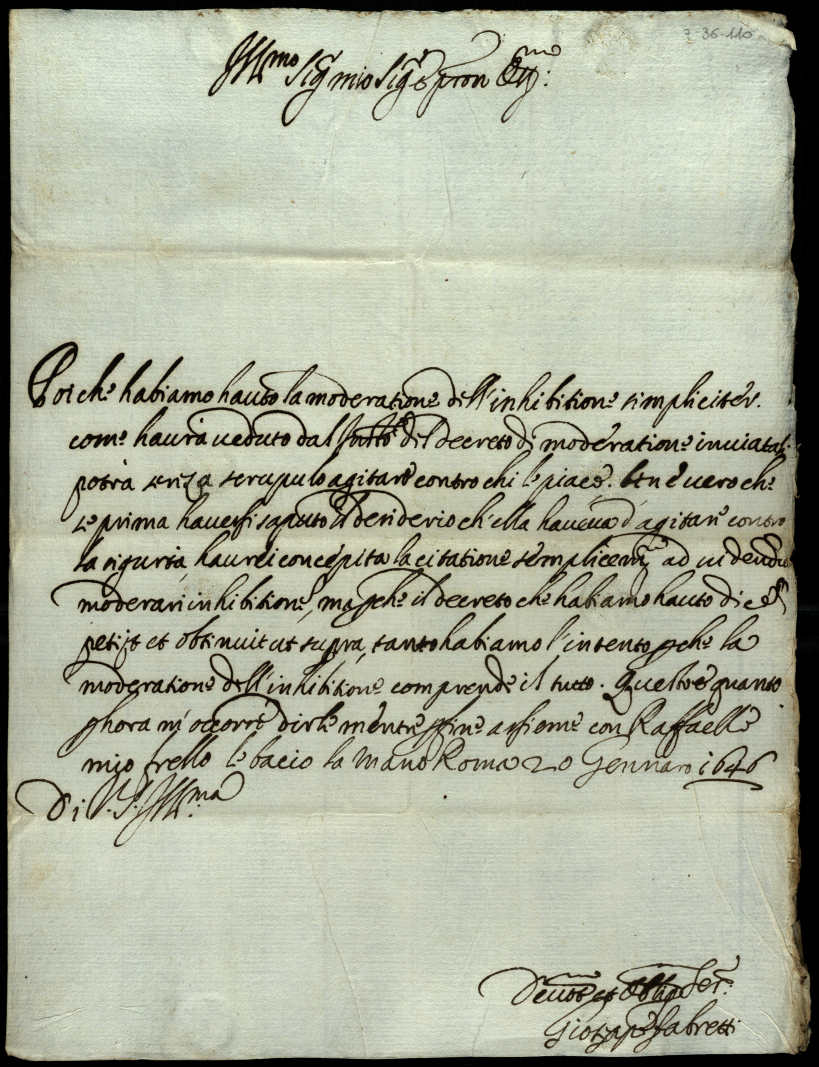 7-36-110
Ill.mo Sig mio Sig.re e pron
Poi che habiamo hauto la moderatione dell'inhibitione simpliciter.
come haurà ueduto dal del decreto di moderatione inuiatali
potrà senza scrupulo agitare contro chi le piace. ben è uero che
se prima hauessi saputo il desiderio ch'ella haueua d'agitare contro
la sigurtà, haurei concepita la citatione semplicem.te ad uidendum
moderari inhibitione, ma perche il decreto che habiamo hauto dice
petijt et obtinuit ut supra, tanto habiamo l'intento perche la
moderatione dell'inhibitione comprende il tutto. Questo è quanto
p hora m'occorre dirle mentre p fine assieme con Raffaelle
mio frello le bacio la mano Roma 20 Gennaro 1646
Di V.S. Ill.ma
Deuot.mo et Oblig.mo Ser.re
Gioseppe Fabretti